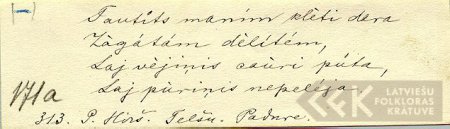 Tautīts manim klēti dera
Zâgátám dēlítém,
Laj vējiņis cauri púta,
Laj pūriņis nepelēja.
171a
313. P. Hirš. Telšu. Padure.
LATVIEŠU
FOLKLORAS
KRĀTUVE